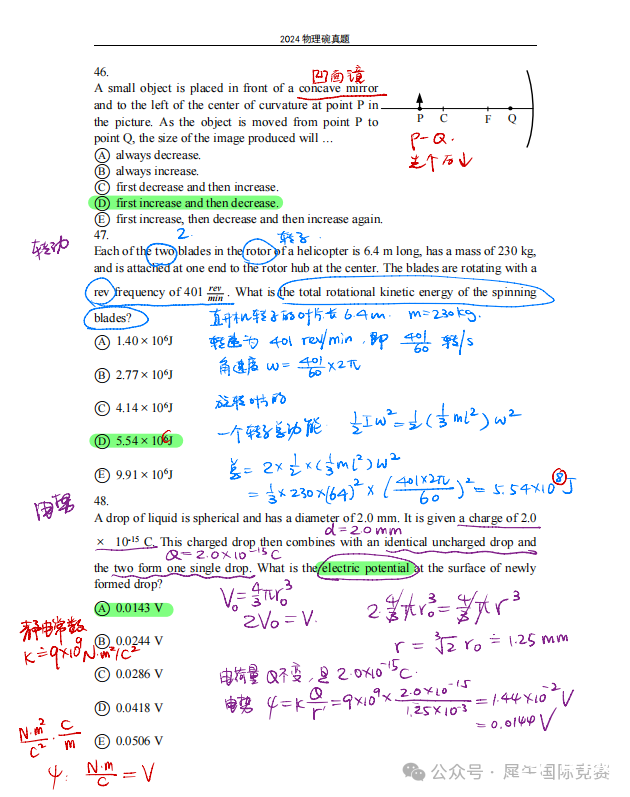 2024 物理碗真题
46.
凹面镜
A small object is placed in front of a concave mirror
and to the left of the center of curvature at point P in
the picture. As the object is moved from point P to
point Q, the size of the image produced will …
P C F Q
P-Q.
A always decrease.
B always increase.
C first decrease and then increase.
D first increase and then decrease.
E first increase, then decrease and then increase again.
47.
2
转子
转动
Each of the two blades in the rotor of a helicopter is 6.4 m long, has a mass of 230 kg,
and is attached at one end to the rotor hub at the center. The blades are rotating with a
rev frequency of 401 rev/min . What is the total rotational kinetic energy of the spinning
blades?
直升机转子的叶片长6.4m. m=230kg.
A 1.40 × 10⁶J
转速为 401 rev/min, 即 401/60 转/s
B 2.77 × 10⁶J
角速度 ω = 401/60 × 2π
C 4.14 × 10⁶J
旋转叶片的
一个转子总动能 1/2 Iω² = 1/2 (1/3 ml²) ω²
D 5.54 × 10⁶J
总 = 2 × 1/2 × (1/3 ml²) ω²
E 9.91 × 10⁶J
= 1/3 × 230 × (64)² × (401×2π/60)² = 5.54×10⁸J
电势
48.
A drop of liquid is spherical and has a diameter of 2.0 mm. It is given a charge of 2.0
d = 2.0 mm
× 10⁻¹⁵ C. This charged drop then combines with an identical uncharged drop and
Q = 2.0×10⁻¹⁵C
the two form one single drop. What is the electric potential at the surface of newly
formed drop?
V₀ = 4/3 πr₀³
2·4/3 πr₀³ = 4/3 πr³
A 0.0143 V
2V₀ = V.
静电常数
r = ³√2 r₀ ≐ 1.25 mm
B 0.0244 V
k ≐ 9×10⁹N·m²/C²
C 0.0286 V
电荷量Q不变, 是 2.0×10⁻¹⁵C.
D 0.0418 V
电势 φ = k Q/r = 9×10⁹ × 2.0×10⁻¹⁵/1.25×10⁻³ = 1.44×10⁻² V
= 0.0144 V
N·m²/C² · C/m
E 0.0506 V
φ: N·m/C = V
公众号 · 犀牛国际竞赛